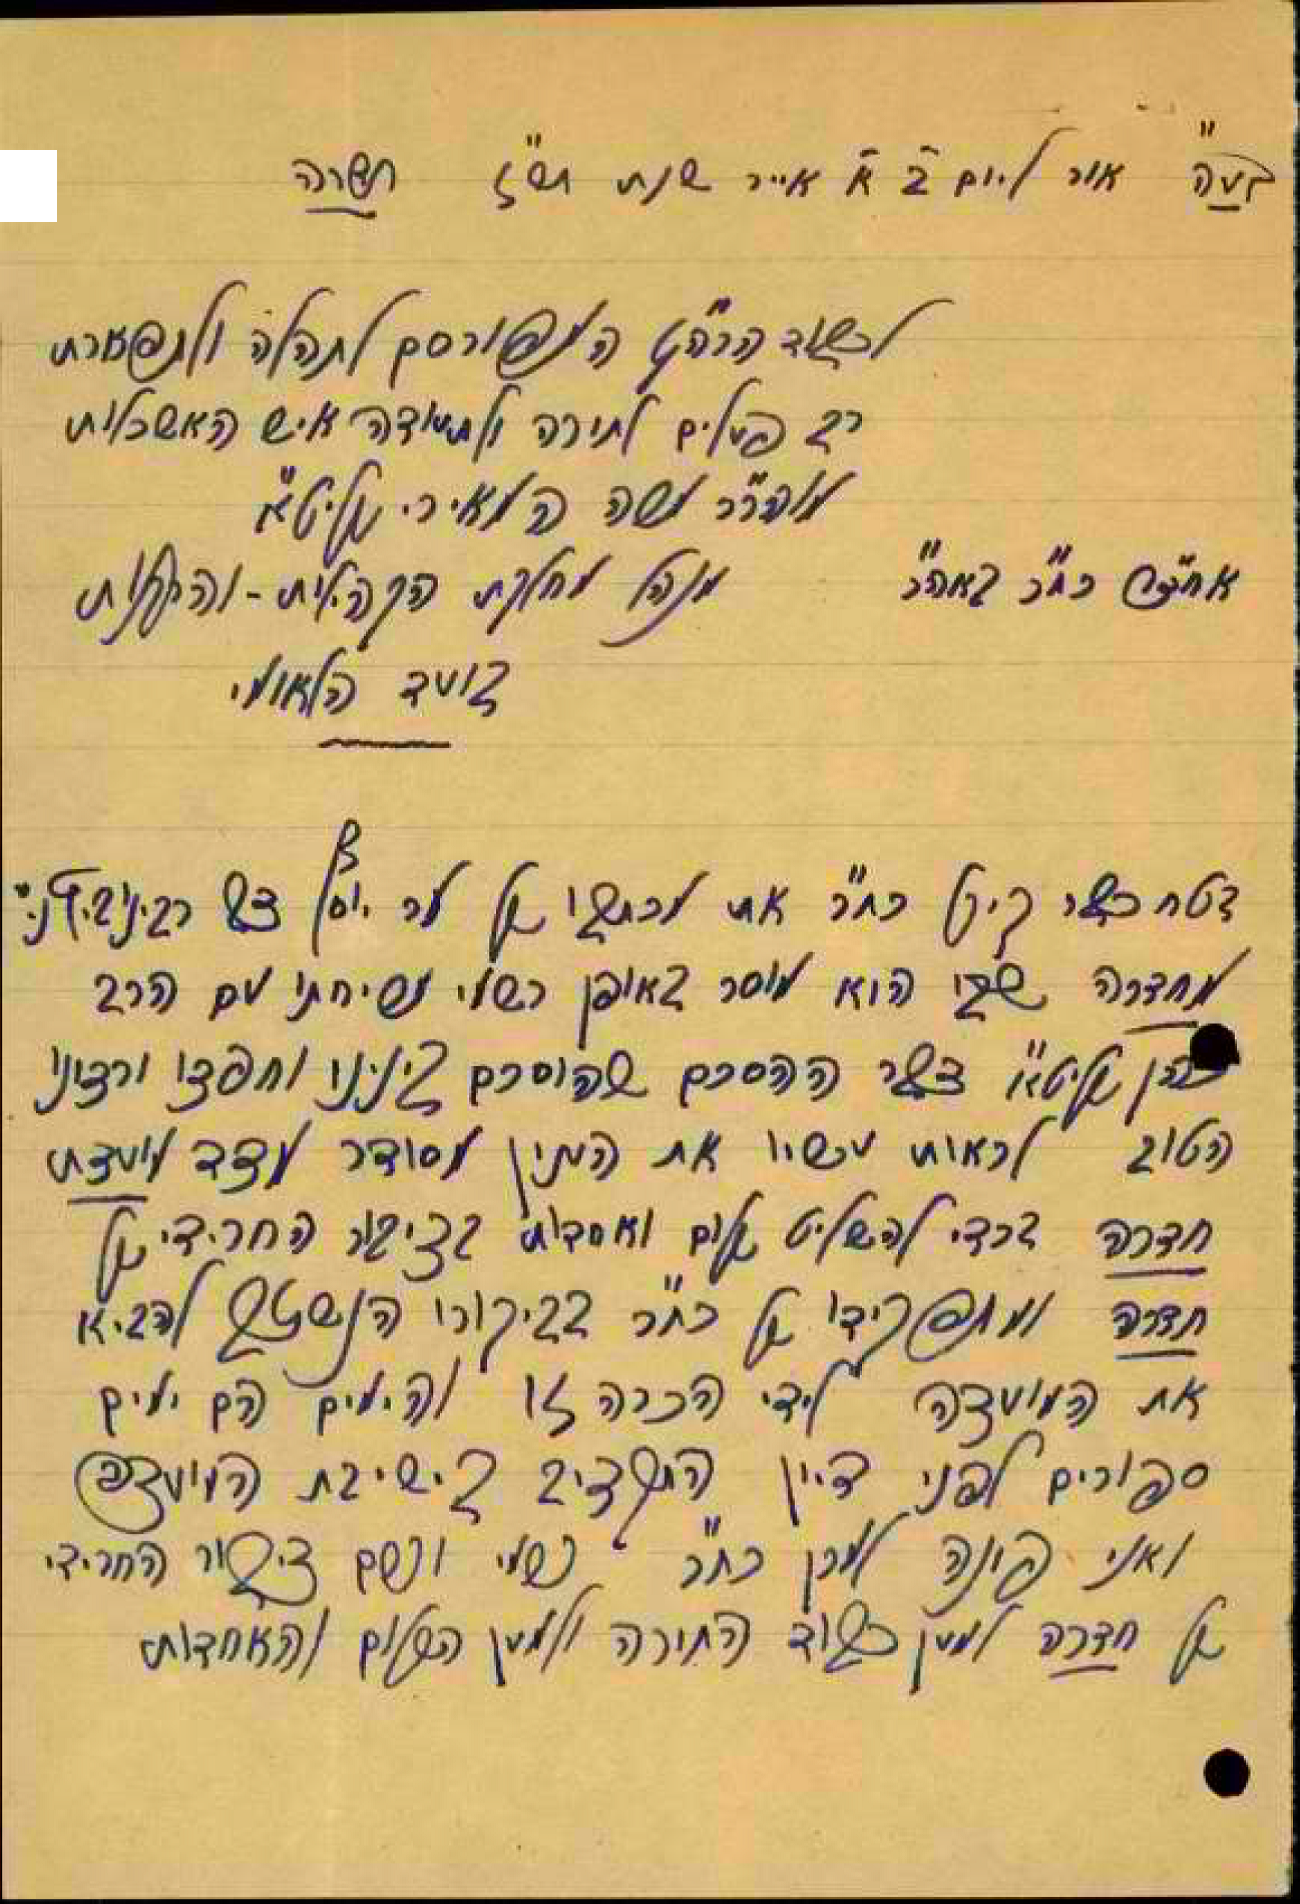 בע"ה אור ליום ב' א' אייר שנת תש"ז חדרה
לכבוד הרה"ג המפורסם לתהלה ולתפארת
רב פעלים לתורה ולתעודה איש האשכלות
מוהר"ר משה המאירי שליט"א
אחד"ש כת"ר באה"ר מנהל מחלקת הקהילות - והרבנות
בועד הלאומי
בטח כבר קיבל כת"ר את מכתבו של מר יוסף צבי
מחדרה שבו הוא מוסר באופן רשמי משיחתי עם הרב
כהן שליט"א בדבר ההסכם שהוסכם בינינו וחפצו ורצונו
הטוב לראות עכשיו את הענין מסודר מצד מועצת
חדרה בכדי להשליט שלום ואחדות בציבור החרידי של
חדרה ומתפקידו של כת"ר בביקורו הנשגב להביא
את המועצה לידי הכרה זו והימים הם ימים
ספורים לפני דיון התקציב בישיבת המועצה
ואני פונה למכן כת"ר בשמי ובשם ציבור החרידי
של חדרה למען כבוד התורה ולמען השלום והאחדות